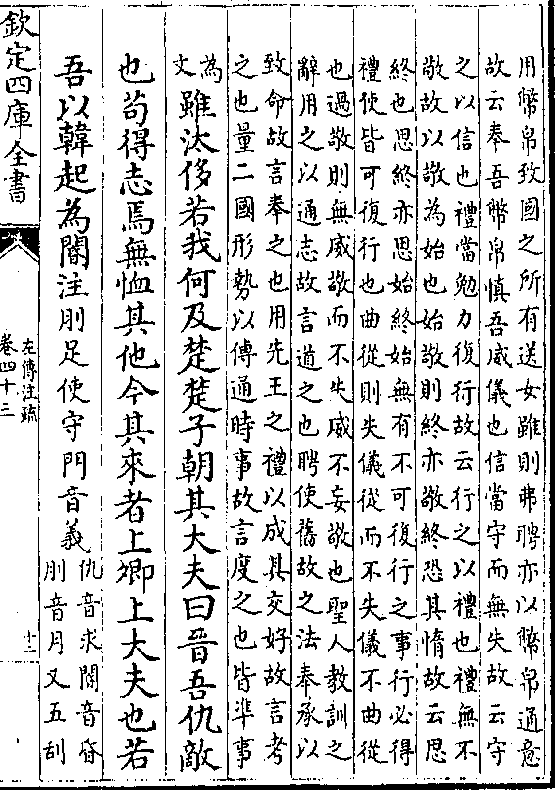 用幣帛致國之所有送女雖則弗聘亦以幣帛通意
故云奉吾幣帛慎吾威儀也信當守而無失故云守
之以信也禮當勉力復行故云行之以禮也禮無不
敬故以敬為始也始敬則終亦敬終恐其惰故云思
終也思終亦思始終始無有不可復行之事行必得
禮使皆可復行也曲從則失儀從而不失儀不曲從
也過敬則無威敬而不失威不妄敬也聖人教訓之
辭用之以通志故言道之也聘使舊故之法奉承以
致命故言奉之也用先王之禮以成其交好故言考
之也量二國形勢以傳通時事故言度之也皆準事
為
文
雖汰侈若我何及楚楚子朝其大夫曰晉吾仇敵
也苟得志焉無恤其他今其來者上卿上大夫也若
吾以韓起為閽注刖足使守門音義
仇音求閽音昏
刖音月又五刮
欽定四庫全書
左傳注疏
卷四十三
十二